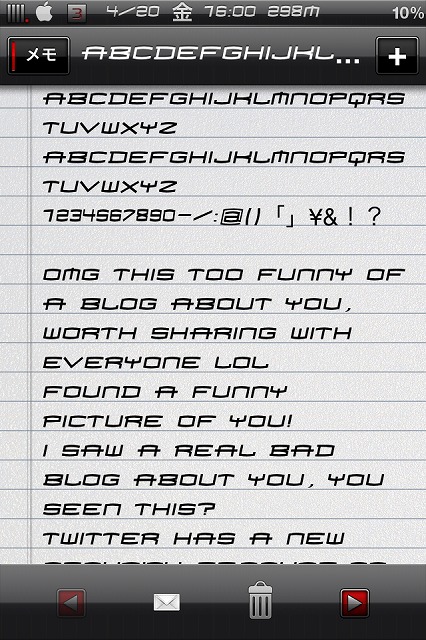 3 4/20 金 16:00 298M 10%
メモ ABCDEFGHIJKL... +
ABCDEFGHIJKLMNOPQRS
TUVWXYZ
ABCDEFGHIJKLMNOPQRS
TUVWXYZ
1234567890-/:@()「」¥&！？
OMG THIS TOO FUNNY OF
A BLOG ABOUT YOU,
WORTH SHARING WITH
EVERYONE LOL
FOUND A FUNNY
PICTURE OF YOU!
I SAW A REAL BAD
BLOG ABOUT YOU, YOU
SEEN THIS?
TWITTER HAS A NEW